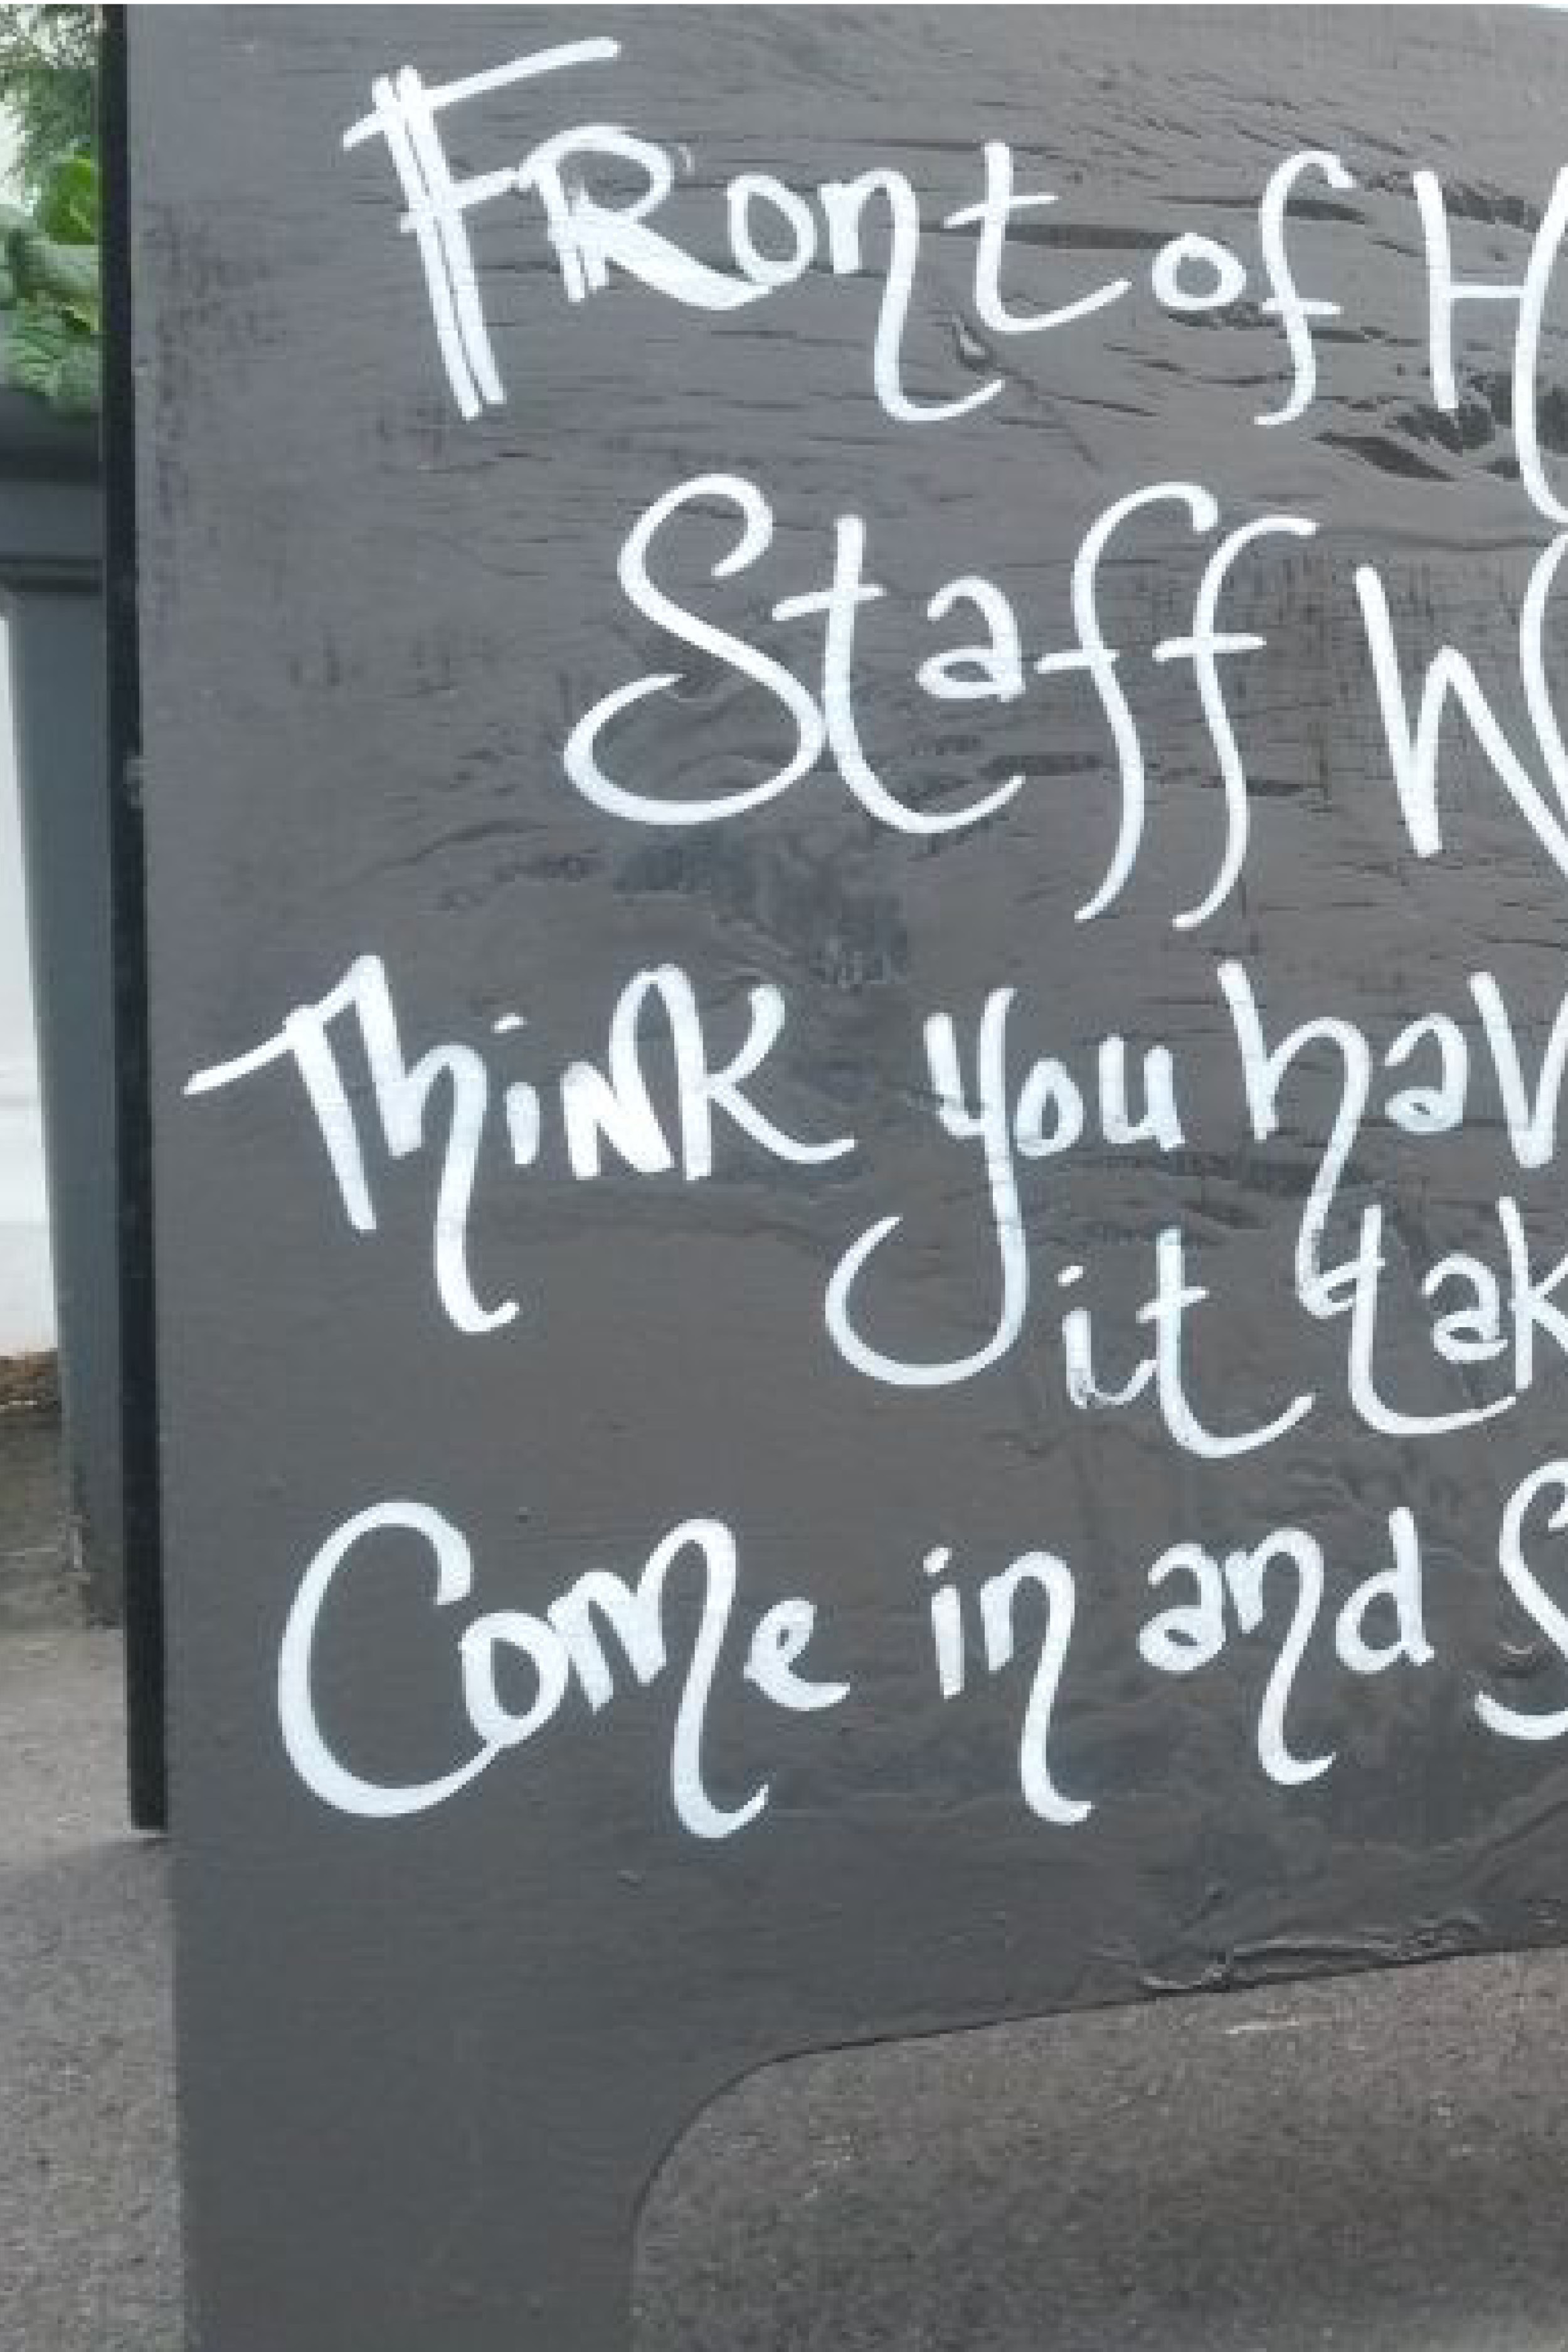 Front of H
Staff
Think you hav
it tak
Come in and